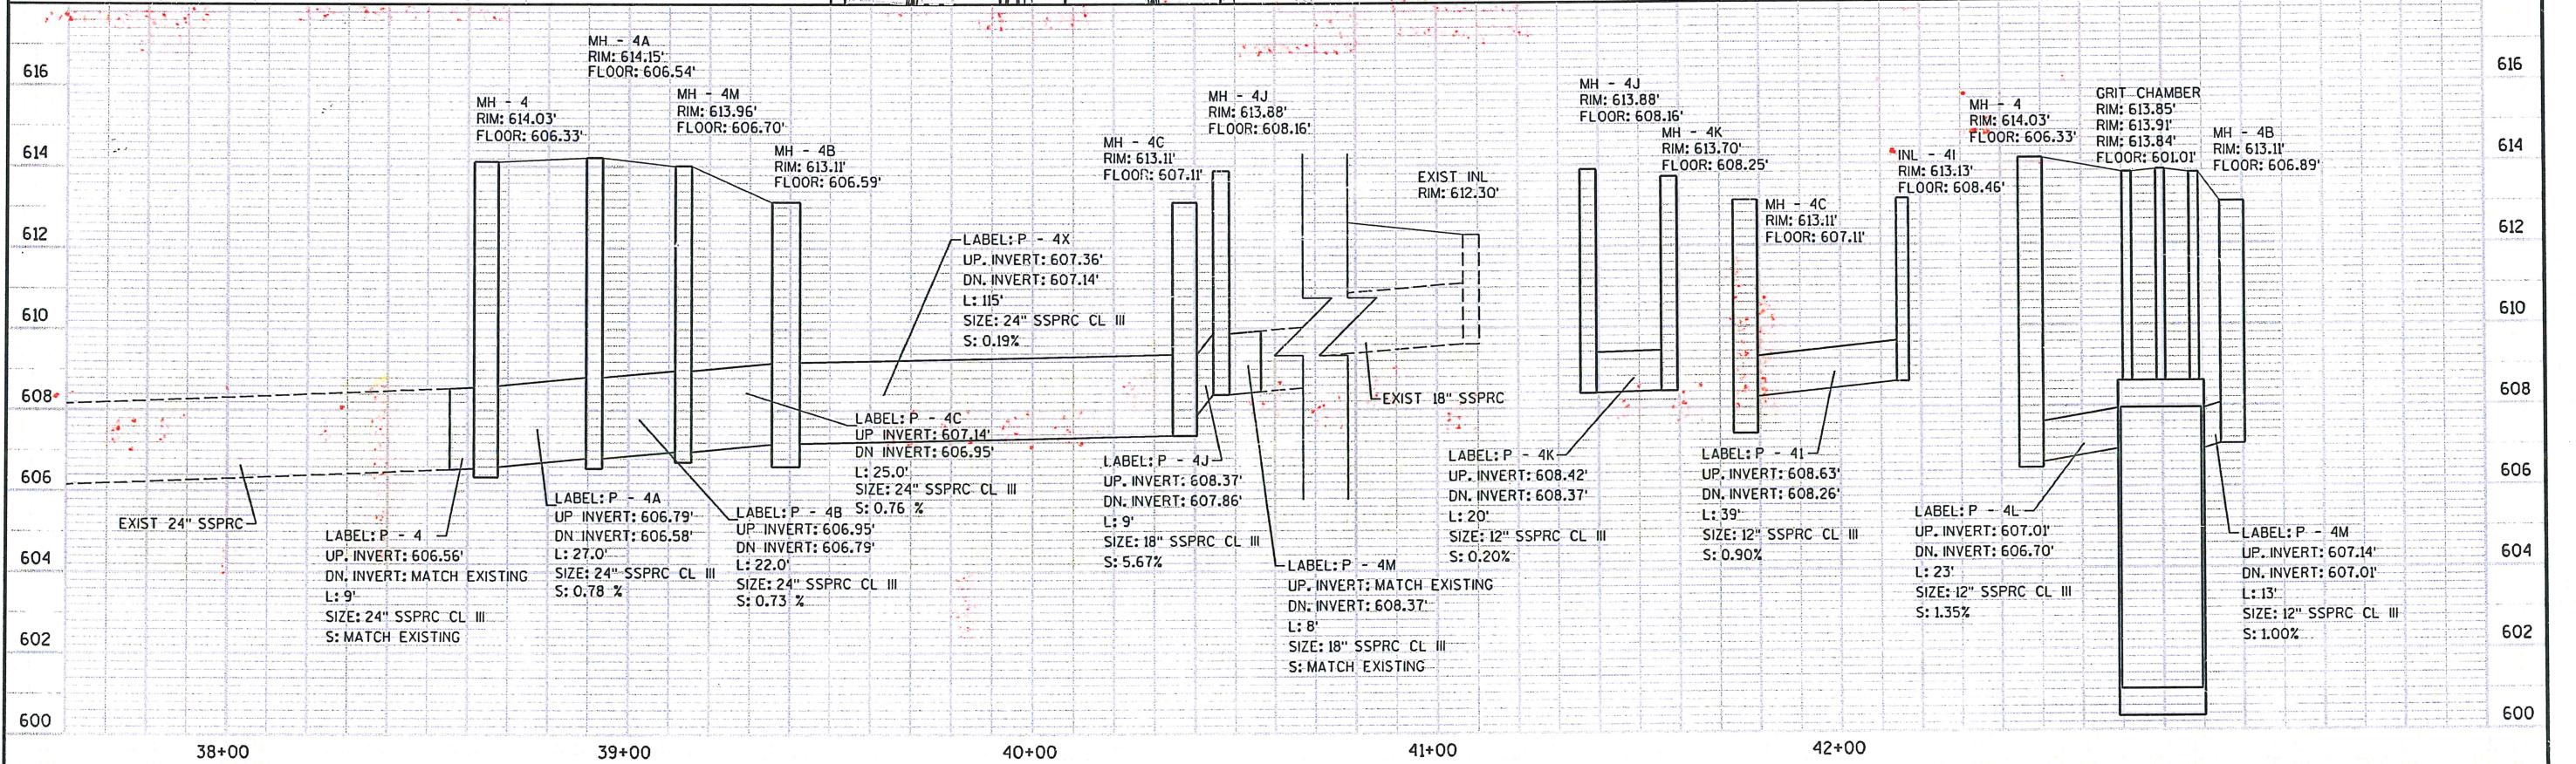 MH - 4A
RIM: 614.15'
FLOOR: 606.54'
MH - 4
RIM: 614.03'
FLOOR: 606.33'
MH - 4M
RIM: 613.96'
FLOOR: 606.70'
MH - 4B
RIM: 613.11'
FLOOR: 606.59'
MH - 4C
RIM: 613.11'
FLOOR: 607.11'
MH - 4J
RIM: 613.88'
FLOOR: 608.16'
EXIST INL
RIM: 612.30'
MH - 4J
RIM: 613.88'
FLOOR: 608.16'
MH - 4K
RIM: 613.70'
FLOOR: 608.25'
MH - 4C
RIM: 613.11'
FLOOR: 607.11'
INL - 4I
RIM: 613.13'
FLOOR: 608.46'
MH - 4
RIM: 614.03'
FLOOR: 606.33'
GRIT CHAMBER
RIM: 613.85'
RIM: 613.91'
RIM: 613.84'
FLOOR: 601.01'
MH - 4B
RIM: 613.11'
FLOOR: 606.89'
616
614
612
610
608
606
604
602
600
EXIST 24" SSPRC
LABEL: P - 4
UP. INVERT: 606.56'
DN. INVERT: MATCH EXISTING
L: 9'
SIZE: 24" SSPRC CL III
S: MATCH EXISTING
LABEL: P - 4A
UP INVERT: 606.79'
DN INVERT: 606.58'
L: 27.0'
SIZE: 24" SSPRC CL III
S: 0.78 %
LABEL: P - 4B
UP INVERT: 606.95'
DN INVERT: 606.79'
L: 22.0'
SIZE: 24" SSPRC CL III
S: 0.73 %
LABEL: P - 4C
UP INVERT: 607.14'
DN INVERT: 606.95'
L: 25.0'
SIZE: 24" SSPRC CL III
S: 0.76 %
LABEL: P - 4X
UP. INVERT: 607.36'
DN. INVERT: 607.14'
L: 115'
SIZE: 24" SSPRC CL III
S: 0.19%
LABEL: P - 4J
UP. INVERT: 608.37'
DN. INVERT: 607.86'
L: 9'
SIZE: 18" SSPRC CL III
S: 5.67%
LABEL: P - 4M
UP. INVERT: MATCH EXISTING
DN. INVERT: 608.37'
L: 8'
SIZE: 18" SSPRC CL III
S: MATCH EXISTING
EXIST 18" SSPRC
LABEL: P - 4K
UP. INVERT: 608.42'
DN. INVERT: 608.37'
L: 20'
SIZE: 12" SSPRC CL III
S: 0.20%
LABEL: P - 4I
UP. INVERT: 608.63'
DN. INVERT: 608.26'
L: 39'
SIZE: 12" SSPRC CL III
S: 0.90%
LABEL: P - 4L
UP. INVERT: 607.01'
DN. INVERT: 606.70'
L: 23'
SIZE: 12" SSPRC CL III
S: 1.35%
LABEL: P - 4M
UP. INVERT: 607.14'
DN. INVERT: 607.01'
L: 13'
SIZE: 12" SSPRC CL III
S: 1.00%
616
614
612
610
608
606
604
602
600
38+00
39+00
40+00
41+00
42+00